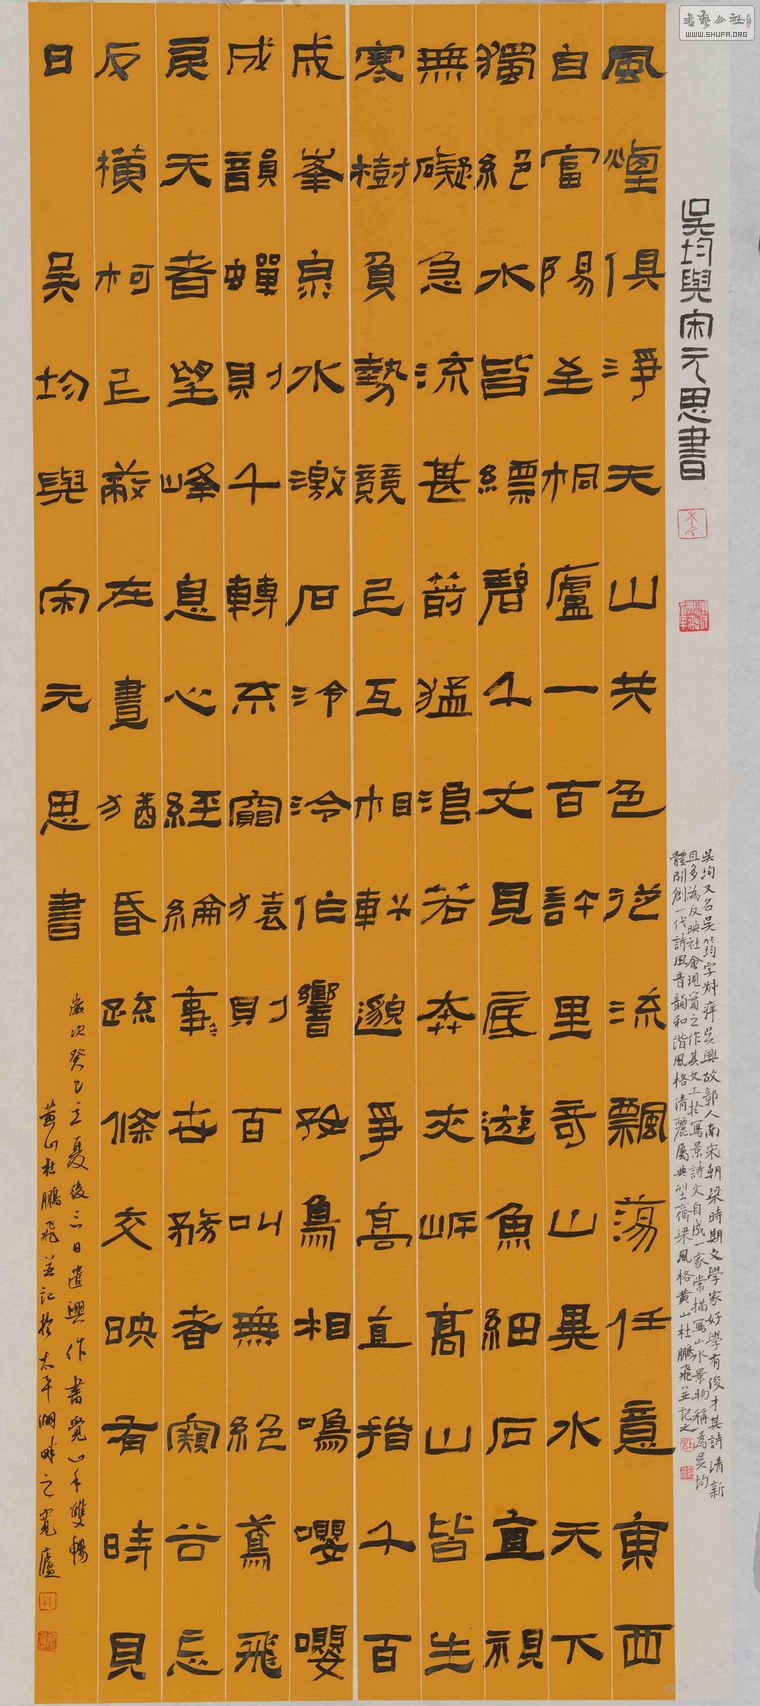 書藝公社
WWW.SHUFA.ORG
吳均與宋元思書
吳均又名吳筠字叔庠吳興故鄣人南宋朝梁時期文學家好學有俊才其詩清新
且多為反映社會現實之作其文工於寫景詩文自成一家常描寫山水景物稱為吳均
體開創一代詩風音韻和諧風格清麗屬典型齊梁風格黃山杜鵬飛並記之
風煙俱淨天山共色從流飄蕩任意東西
自富陽至桐廬一百許里奇山異水天下
獨絕水皆縹碧千丈見底遊魚細石直視
無礙急流甚箭猛浪若奔夾岸高山皆生
寒樹負勢競上互相軒邈爭高直指千百
成峯泉水激石泠泠作響好鳥相鳴嚶嚶
成韻蟬則千轉不窮猿則百叫無絕鳶飛
戾天者望峰息心經綸事世務者窺谷忘
反橫柯上蔽在晝猶昏疏條交映有時見
日 吳均與宋元思書
歲次癸巳立夏後三日遣興作書覺心手雙暢
黃山杜鵬飛並記於太平湖畔之寬廬